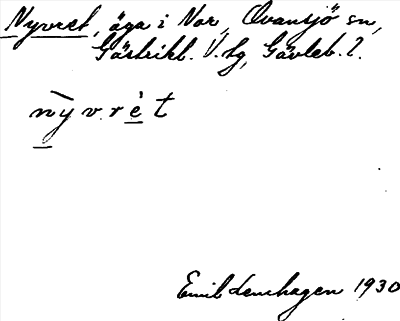 Nyvret, äga i Nor, Ovansjö sn,
Gästrikl. V. tg, Gävleb. l.
nyvrèt
Emil Lenhagen 1930